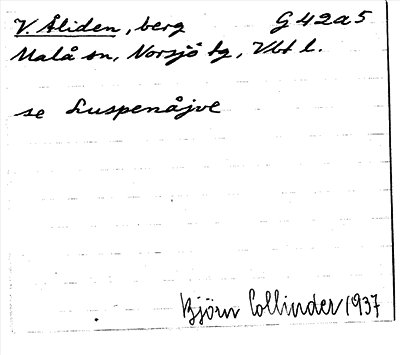 V. Åliden, berg G 42a5
Malå sn, Norsjö tg, Vbt l.
se Luspenåjve
Björn Collinder 1937